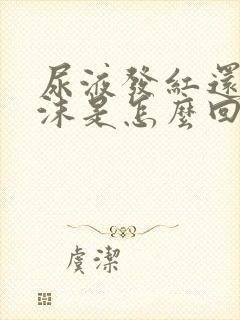 尿液發紅還
沫是怎麼回
虞潔